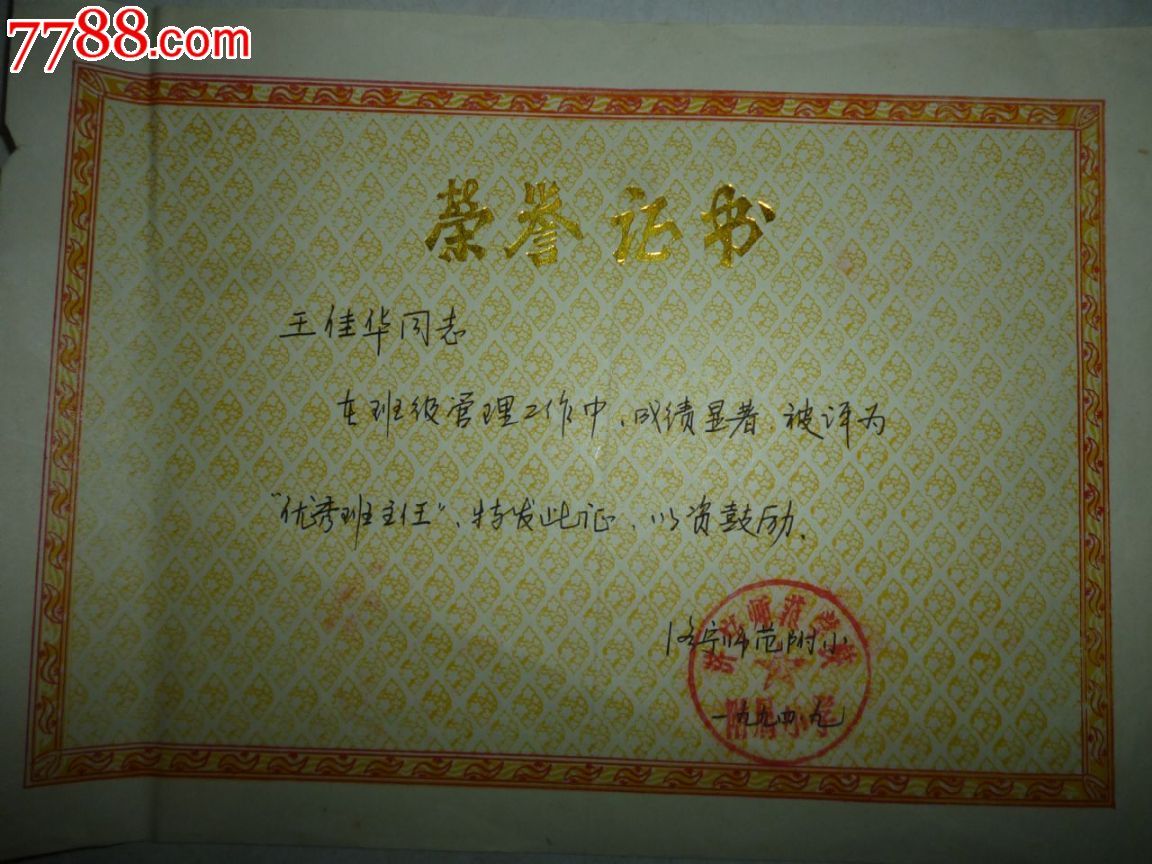 7788.com
荣誉证书
王佳华同志
在班级管理工作中、成绩显著,被评为
“优秀班主任”、特发此证、以资鼓励。
师范附小
师范学校
附属小学
一九九四.九